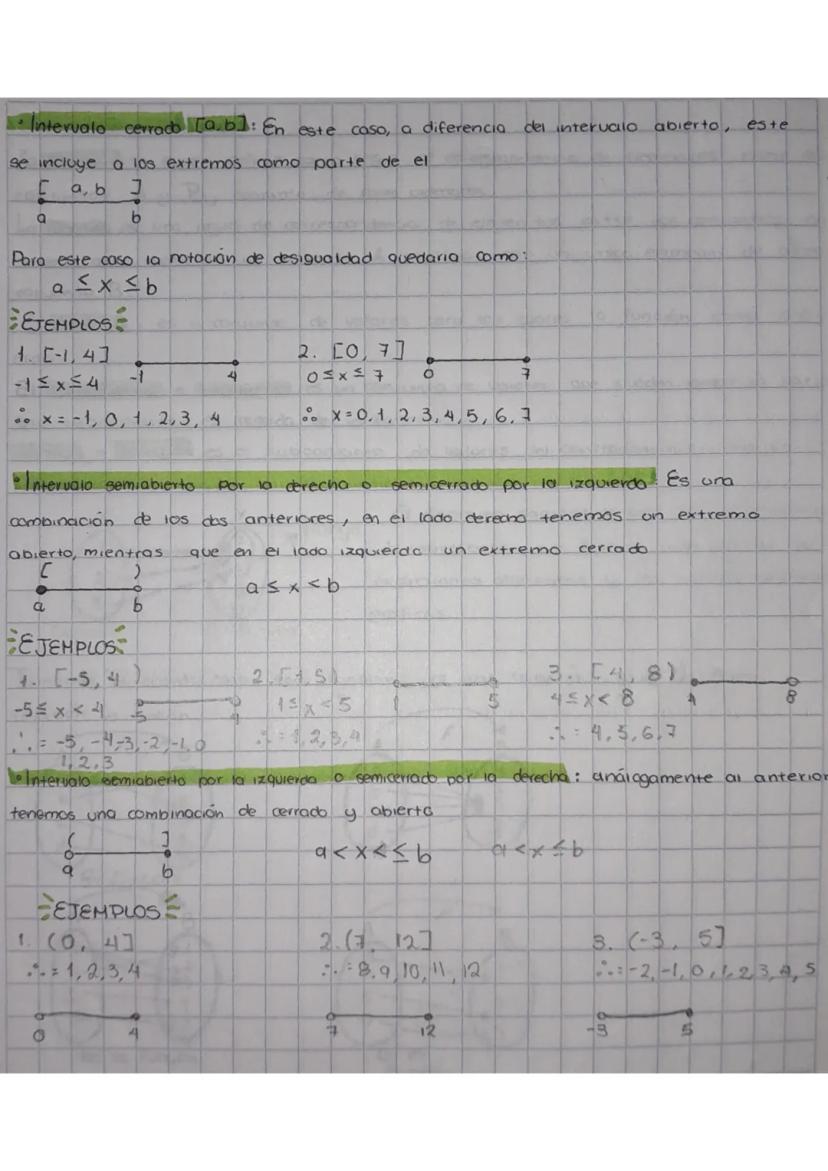 • Intervalo cerrado [a,b]: En este caso, a diferencia del intervalo abierto, este
se incluye a los extremos como parte de el
[ a, b ]
a b
Para este caso la notación de desigualdad quedaria como:
a ≤ x ≤ b
EJEMPLOS
1. [-1, 4] 2. [0, 7]
-1 ≤ x ≤ 4 -1 4 0 ≤ x ≤ 7 0 7
∴ x = -1, 0, 1, 2, 3, 4 ∴ x = 0, 1, 2, 3, 4, 5, 6, 7
• Intervalo semiabierto por la derecha o semicerrado por la izquierda: Es una
combinación de los dos anteriores, en el lado derecho tenemos un extremo
abierto, mientras que en el lado izquierdo un extremo cerrado
[ )
a ≤ x < b
a b
EJEMPLOS
1. [-5, 4) 2. [1, 5) 3. [4, 8)
-5 ≤ x < 4 -5 4 1 ≤ x < 5 1 5 4 ≤ x < 8 4 8
∴ = -5, -4, -3, -2, -1, 0 ∴ = 1, 2, 3, 4 ∴ = 4, 5, 6, 7
1, 2, 3
• Intervalo semiabierto por la izquierda o semicerrado por la derecha: análogamente al anterior
tenemos una combinación de cerrado y abierto
( ]
a < x < ≤ b a < x ≤ b
a b
EJEMPLOS
1. (0, 4] 2. (7, 12] 3. (-3, 5]
∴ = 1, 2, 3, 4 ∴ = 8, 9, 10, 11, 12 ∴ = -2, -1, 0, 1, 2, 3, 4, 5
0 4 7 12 -3 5